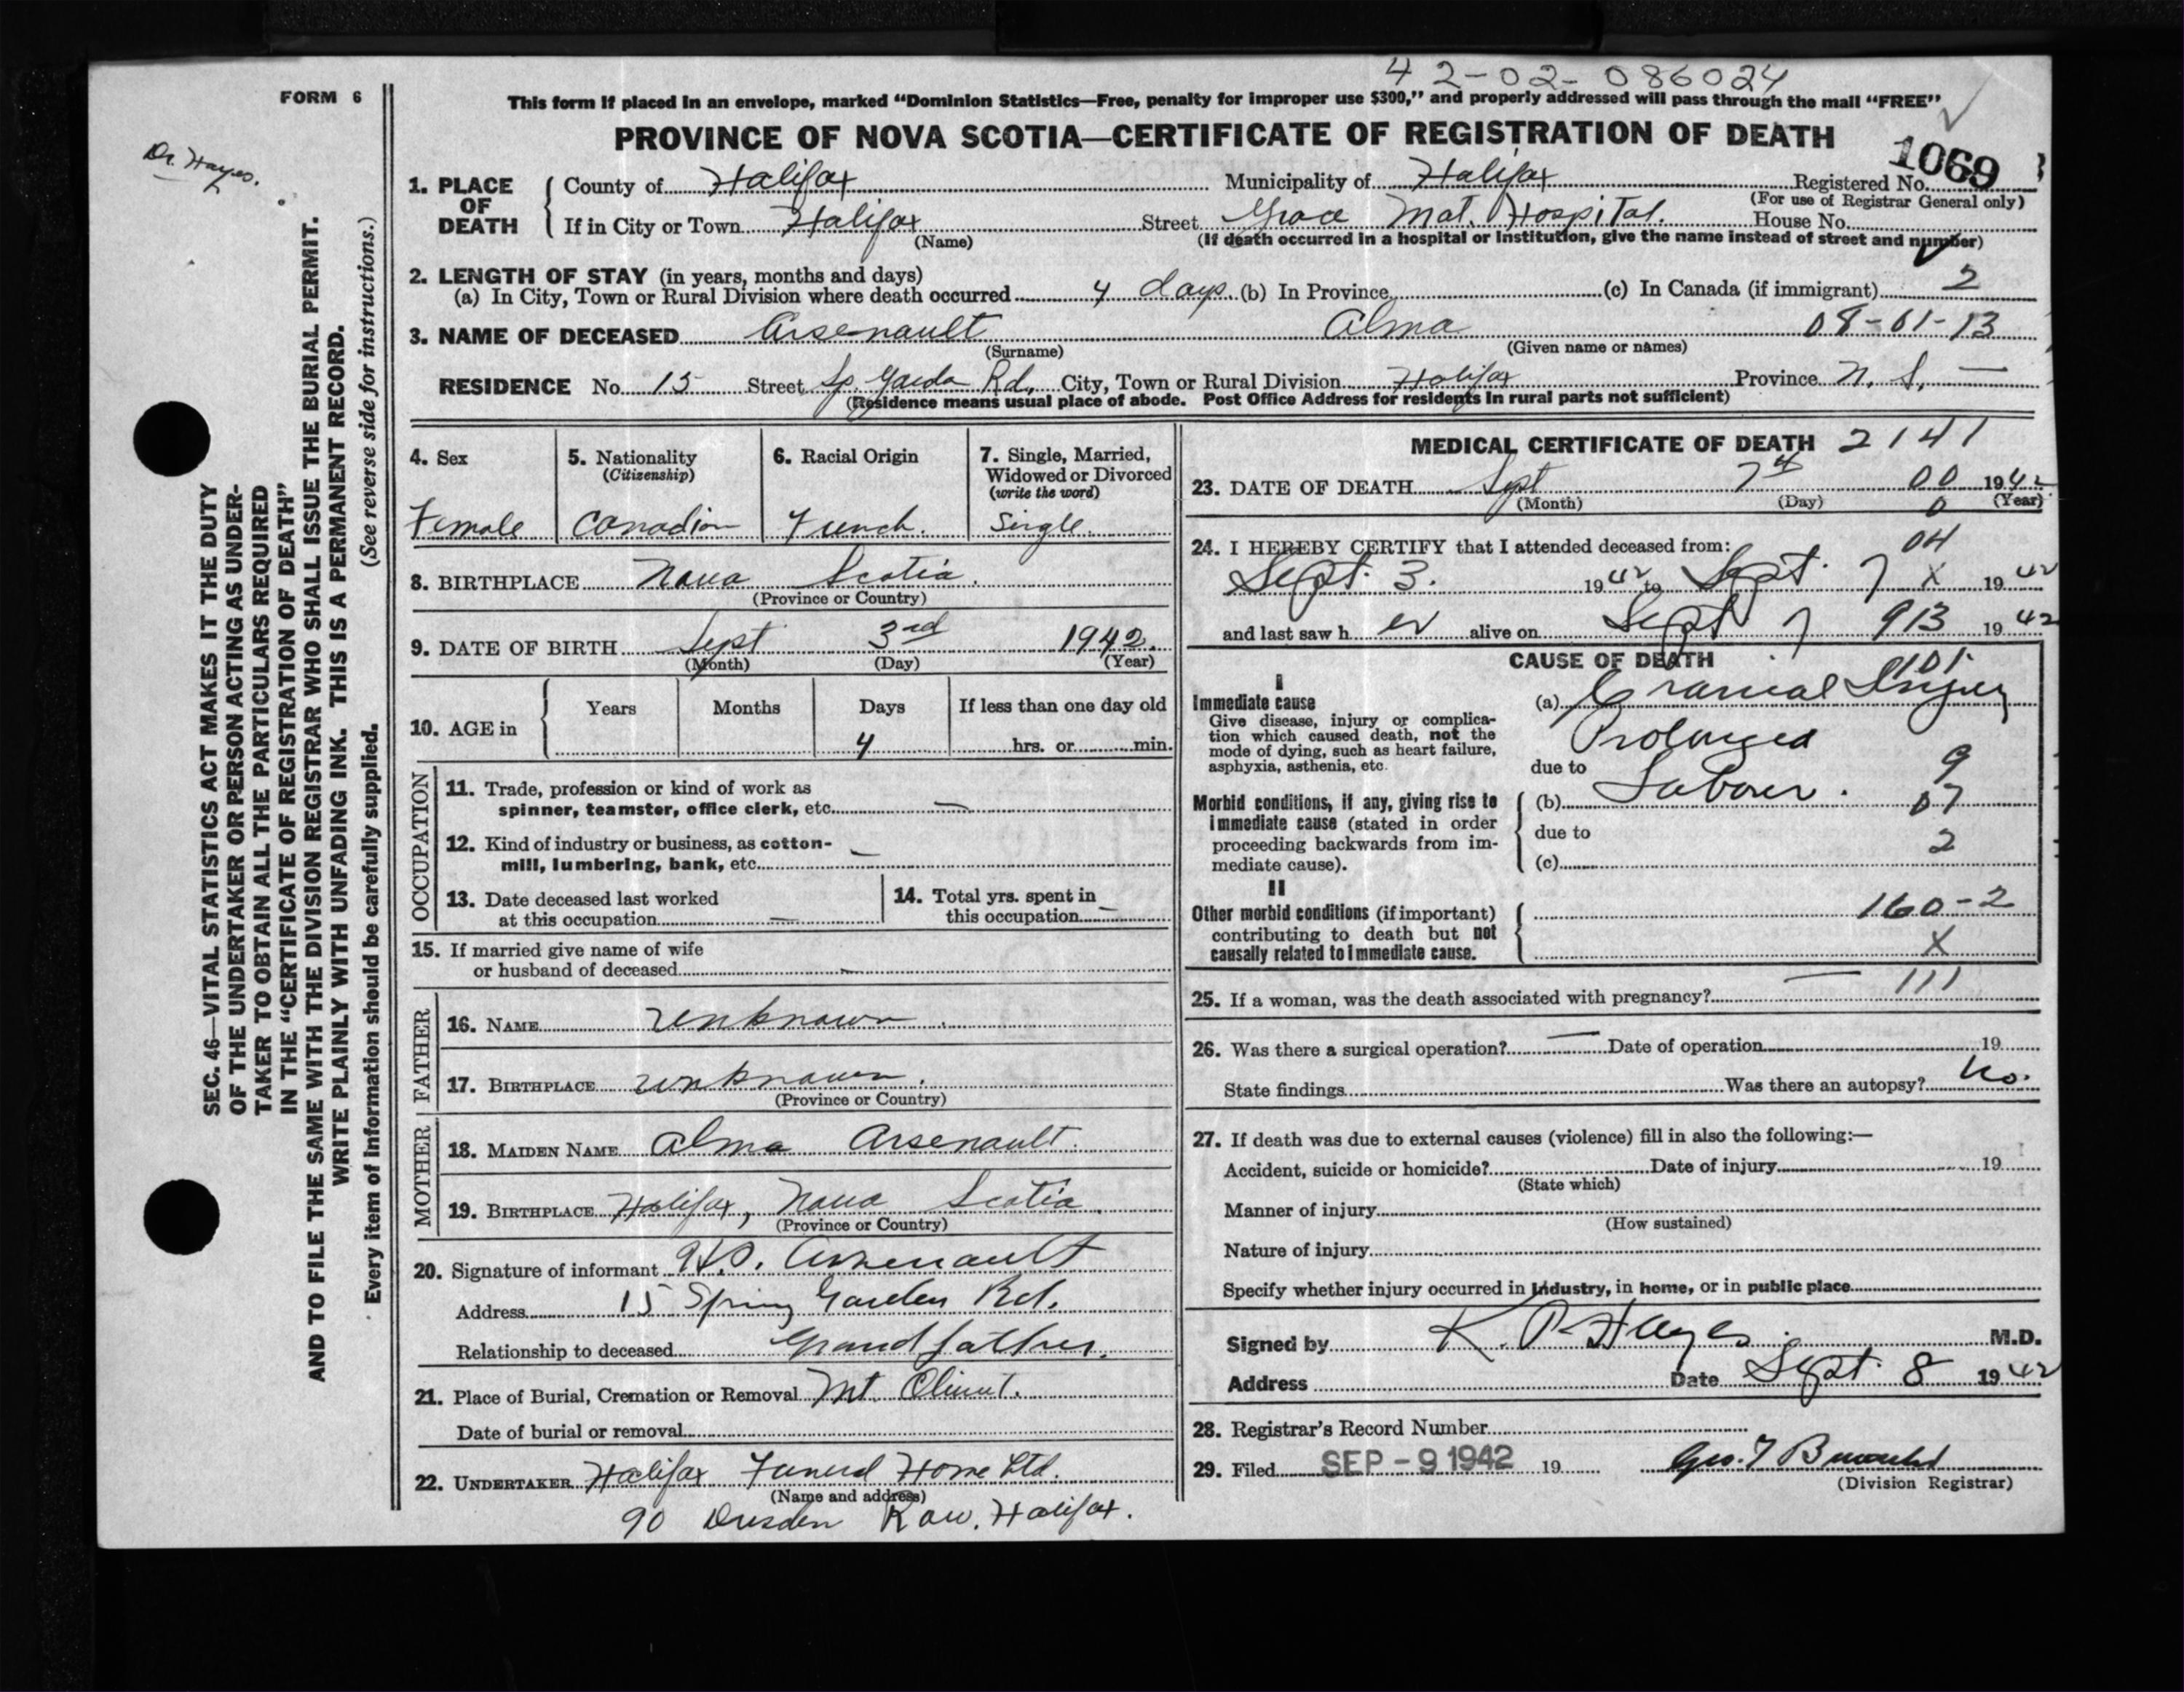 42-02-086024
FORM 6
This form if placed in an envelope, marked “Dominion Statistics—Free, penalty for improper use $300,” and properly addressed will pass through the mail “FREE”
PROVINCE OF NOVA SCOTIA—CERTIFICATE OF REGISTRATION OF DEATH
Dr. Hayes.
1069
1. PLACE OF DEATH County of Halifax Municipality of Halifax Registered No.
(For use of Registrar General only)
If in City or Town Halifax Street Grace Mat. Hospital. House No.
(Name) (If death occurred in a hospital or institution, give the name instead of street and number)
2. LENGTH OF STAY (in years, months and days)
(a) In City, Town or Rural Division where death occurred 4 days. (b) In Province (c) In Canada (if immigrant) 2
3. NAME OF DECEASED Arsenault Alma 08-01-13
(Surname) (Given name or names)
RESIDENCE No. 15 Street Sp. Garden Rd, City, Town or Rural Division Halifax Province N. S. —
(Residence means usual place of abode. Post Office Address for residents in rural parts not sufficient)
4. Sex
Female
5. Nationality
(Citizenship)
Canadian
6. Racial Origin
French.
7. Single, Married,
Widowed or Divorced
(write the word)
Single.
8. BIRTHPLACE Nova Scotia.
(Province or Country)
9. DATE OF BIRTH Sept 3rd 1942.
(Month) (Day) (Year)
10. AGE in Years Months Days If less than one day old
4 hrs. or min.
OCCUPATION
11. Trade, profession or kind of work as
spinner, teamster, office clerk, etc. —
12. Kind of industry or business, as cotton-
mill, lumbering, bank, etc. —
13. Date deceased last worked
at this occupation —
14. Total yrs. spent in
this occupation —
15. If married give name of wife
or husband of deceased —
FATHER
16. NAME Unknown.
17. BIRTHPLACE Unknown.
(Province or Country)
MOTHER
18. MAIDEN NAME Alma Arsenault.
19. BIRTHPLACE Halifax, Nova Scotia.
(Province or Country)
20. Signature of informant Arsenault
Address 15 Spring Garden Rd.
Relationship to deceased Grandfather.
21. Place of Burial, Cremation or Removal Mt. Olivet.
Date of burial or removal
22. UNDERTAKER Halifax Funeral Home Ltd.
(Name and address)
90 Dresden Row, Halifax.
MEDICAL CERTIFICATE OF DEATH 2141
23. DATE OF DEATH Sept 7th 00 1942
(Month) (Day) 0 (Year)
24. I HEREBY CERTIFY that I attended deceased from: 04
Sept. 3. 1942 to Sept. 7 X 1942
and last saw her alive on Sept 7 913 1942
CAUSE OF DEATH
101
I
Immediate cause
Give disease, injury or complica-
tion which caused death, not the
mode of dying, such as heart failure,
asphyxia, asthenia, etc.
(a) Cranial Injury
Prolonged
due to 9
(b) Labour. 07
due to 2
(c)
Morbid conditions, if any, giving rise to
immediate cause (stated in order
proceeding backwards from im-
mediate cause).
II
Other morbid conditions (if important)
contributing to death but not
causally related to immediate cause.
160-2
X
25. If a woman, was the death associated with pregnancy? — 111
26. Was there a surgical operation? — Date of operation 19
State findings Was there an autopsy? No.
27. If death was due to external causes (violence) fill in also the following:—
Accident, suicide or homicide? Date of injury 19
(State which)
Manner of injury
(How sustained)
Nature of injury
Specify whether injury occurred in industry, in home, or in public place
Signed by K. P. Hayes. M.D.
Address Date Sept. 8 1942
28. Registrar's Record Number
29. Filed SEP - 9 1942 19 Geo. F
(Division Registrar)
SEC. 46—VITAL STATISTICS ACT MAKES IT THE DUTY
OF THE UNDERTAKER OR PERSON ACTING AS UNDER-
TAKER TO OBTAIN ALL THE PARTICULARS REQUIRED
IN THE “CERTIFICATE OF REGISTRATION OF DEATH”
AND TO FILE THE SAME WITH THE DIVISION REGISTRAR WHO SHALL ISSUE THE BURIAL PERMIT.
WRITE PLAINLY WITH UNFADING INK. THIS IS A PERMANENT RECORD.
Every item of information should be carefully supplied. (See reverse side for instructions.)